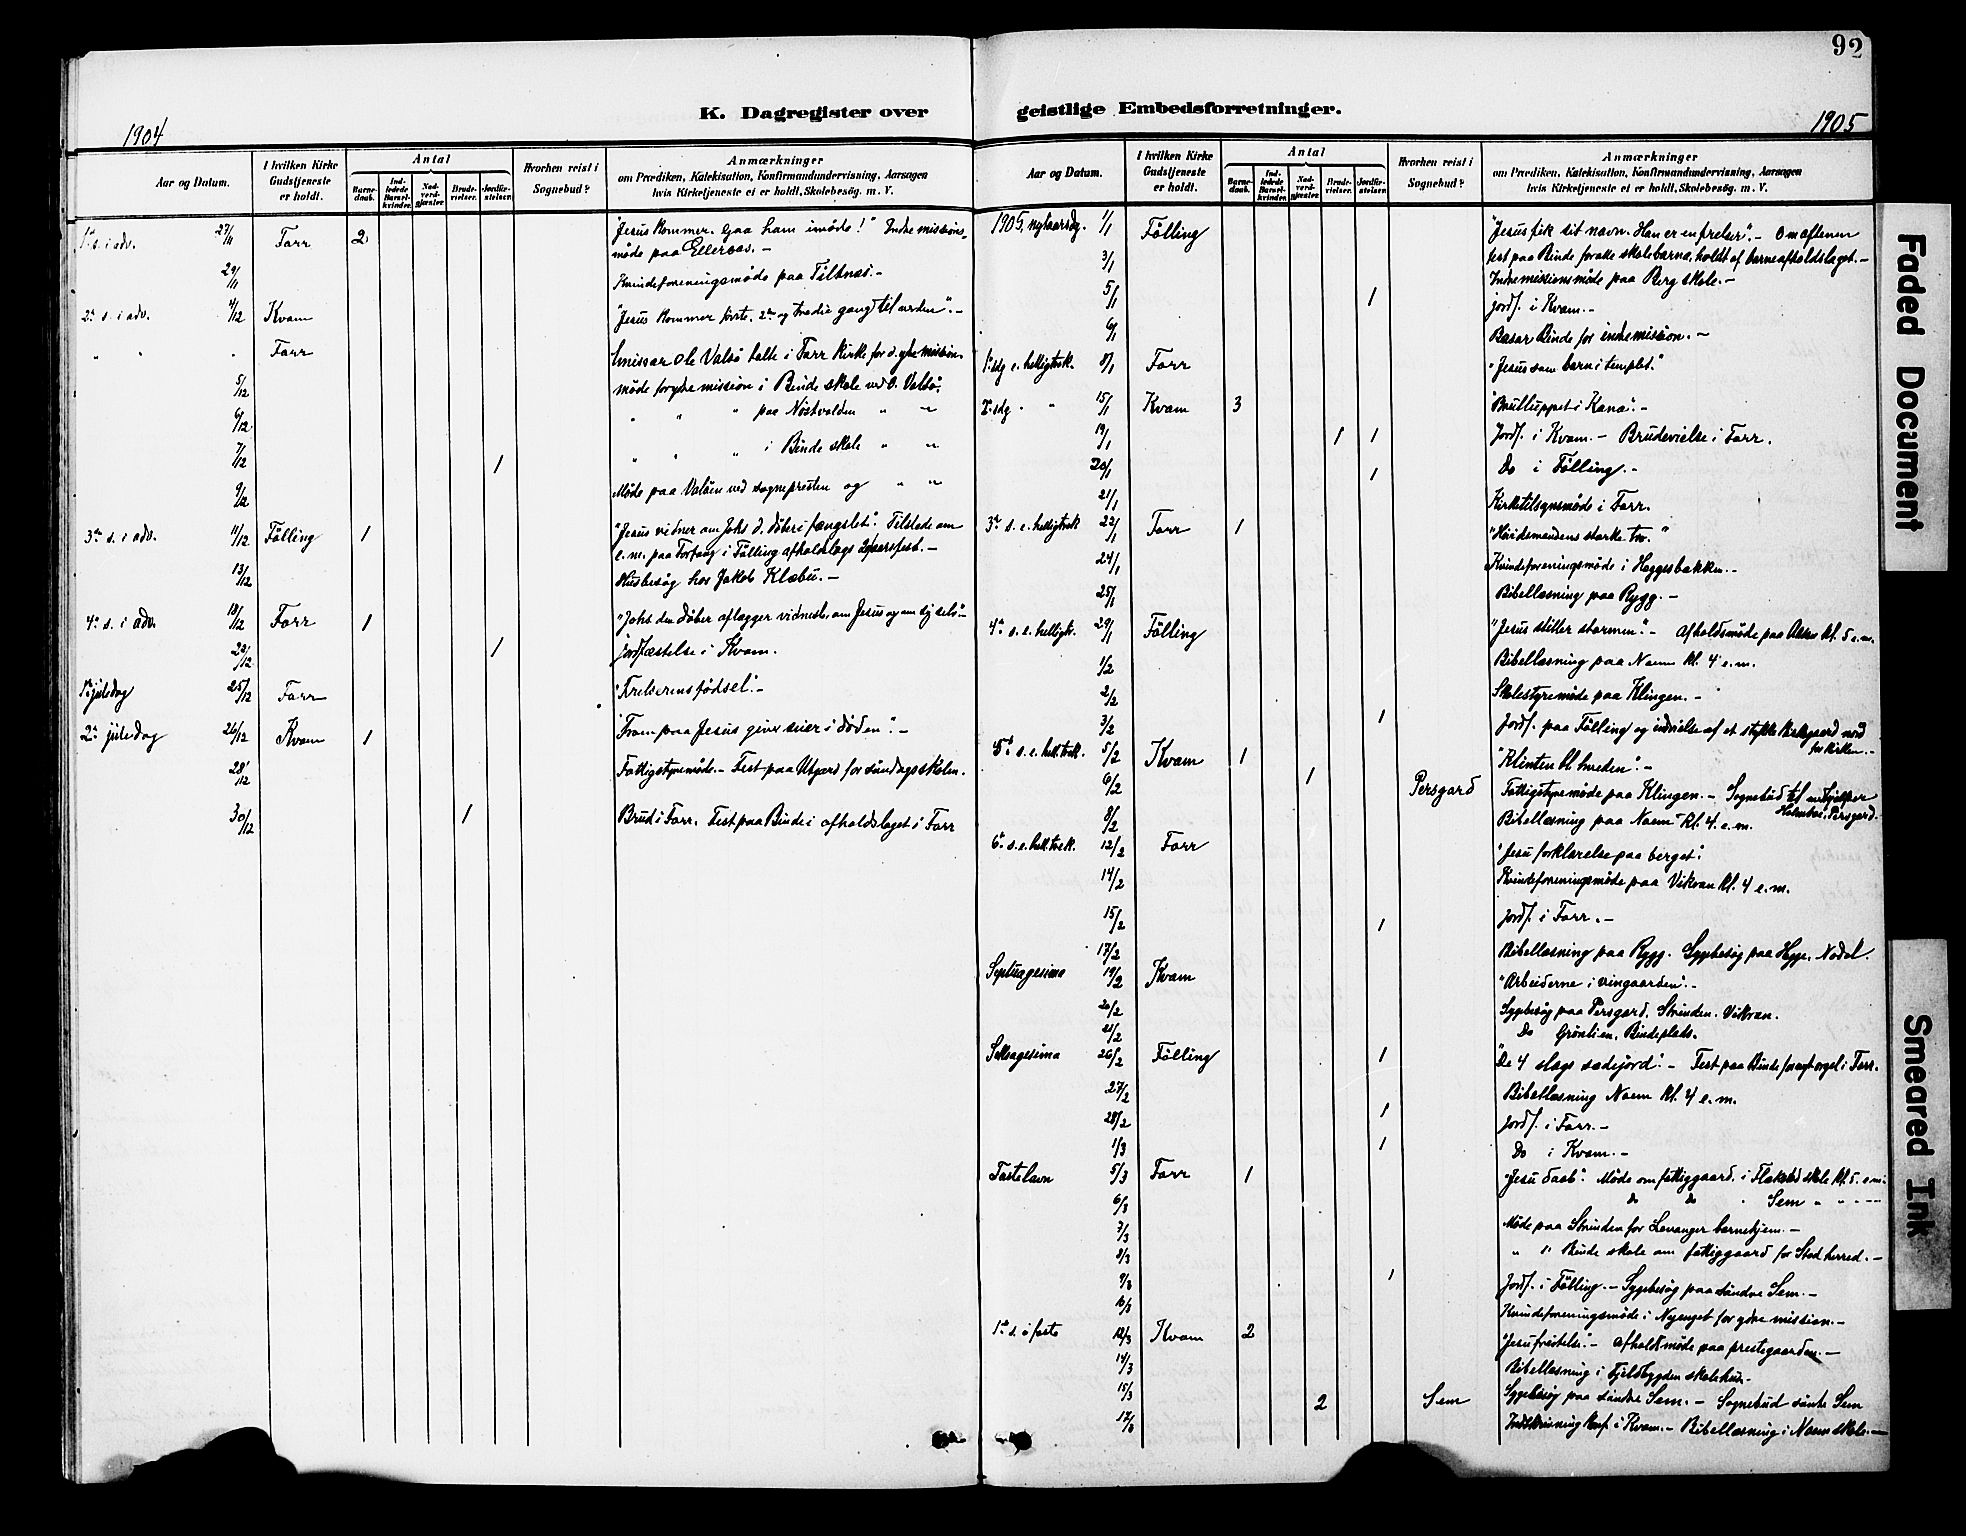 92
K. Dagregister over geistlige Embedsforretninger.
1904
Aar og Datum.
I hvilken Kirke Gudstjeneste er holdt.
Antal
Barnedaab.
Indledede Barselkvinder.
Nadverdgjæster.
Brudevielser.
Jordfæstelser.
Hvorhen reist i Sognebud?
Anmærkninger
om Prædiken, Katekisation, Konfirmandundervisning, Aarsagen
hvis Kirketjeneste ei er holdt, Skolebesøg. m. V.
1ste s. i adv. 27/11 Forr 2 "Jesus kommer. Gaa ham imøde!" Indremissions-
møde paa
29/11 Kvindeforeningsmøde paa
2den s. i adv. 4/12 Kvam "Jesus kommer første, 2den og tredie gang til jorden". -
" " " Forr Emissær Ole Valsö talte i Forr Kirke for d. ydre mission.
5/12 Møde for ydre mission i Binde skole ved O. Valsö.
6/12 " " " paa Nöstvolden " "
7/12 1 " " " i Binde skole " "
9/12 Møde paa Valöen ved sognepresten og " "
3die s. i adv. 11/12 Fölling 1 "Jesus vidner om Johs d. döber i fængslet". Tilstede om
e.m. paa Forfang i Fölling afholdslags aarsfest. -
13/12 Husbesög hos Jakob Klæbu. -
4de s. i adv. 18/12 Forr 1 "Johs den döber aflægger vidnesb. om Jesus og om sig selv". -
23/12 1 Jordfæstelse i Kvam.
1ste juledag 25/12 Forr "Frelserens födsel". -
2den juledag 26/12 Kvam 1 "Troen paa Jesus giver seier i döden". -
28/12 Fattigstyremöde. - Fest paa Utgard for söndagsskolen.
30/12 1 Brud i Forr. Fest paa Binde i afholdslaget i Forr
1905
Aar og Datum.
I hvilken Kirke Gudstjeneste er holdt.
Antal
Barnedaab.
Indledede Barselkvinder.
Nadverdgjæster.
Brudevielser.
Jordfæstelser.
Hvorhen reist i Sognebud?
Anmærkninger
om Prædiken, Katekisation, Konfirmandundervisning, Aarsagen
hvis Kirketjeneste ei er holdt, Skolebesøg. m. V.
1905, nytaarsdg. 1/1 Fölling "Jesus fik sit navn. Han er en frelser". - Om aftenen
fest paa Binde for alle skolebarna, holdt af barneafholdslaget. -
3/1 Indremissionsmöde paa Berg skole. -
5/1 1 Jordf. i Kvam. -
6/1 Basar Binde for indremission. -
1ste sdg e. helligtrek. 8/1 Forr "Jesus som barn i templet."
2den sdg " " 15/1 Kvam 3 "Brylluppet i Kana". -
19/1 1 1 Jordf. i Kvam. - Brudevielse i Forr.
20/1 1 Do i Fölling. -
21/1 Kirketilsynsmöde i Forr.
3die s. e. helligtrek 22/1 Forr 1 "Hövidsmandens sterke tro."
24/1 Kvindeforeningsmöde i Heggesbakken. -
25/1 Bibellæsning paa Rygg. -
4de s. e. helligtr. 29/1 Fölling "Jesus stiller stormen". - Afholdsmöde paa kl. 5 e.m.
1/2 Bibellæsning paa Noem kl. 4 e.m.
2/2 Skolestyremöde paa Klingen. -
3/2 1 Jordf. paa Fölling og indvielse af et stykke kirkegaard nord
for kirken. -
5te s. e. hell.trek. 5/2 Kvam 1 "Klinten bl. hveden". -
6/2 1 Persgard Fattigstyremöde paa Klingen. - Sognebud til
Persgard.
8/2 Bibellæsning paa Noem kl. 4. e.m.
6te s. e. hell.trek. 12/2 Forr "Jesu forklarelse paa berget".
14/2 Kvindeforeningsmöde paa Vikvan kl. 4 e.m.
15/2 1 Jordf. i Forr. -
17/2 Bibellæsning paa Rygg. Sygebesög paa Hegge,
Septuagesima 19/2 Kvam "Arbeiderne i vingaarden". -
20/2 Sygebesög paa Persgard. Strinden. Vikvan.
21/2 Do Grönlien. Bindeplads.
Seksagesima 26/2 Fölling 1 "De 4 slags sædejord". - Fest paa Binde for nyt orgel i Forr.
27/2 Bibellæsning Noem kl. 4 e.m.
28/2 1 Jordf. i Forr. -
1/3 1 Do i Kvam. -
Fastelavn 5/3 Forr 1 "Jesu daab". Möde om fattiggaard i skole kl. 5. e.m.
6/3 do do " Sem " " - -
7/3 Möde paa Strinden for Levanger barnehjem. -
8/3 " i Binde skole om fattiggaard for Stod herred. -
9/3 1 Jordf. i Fölling. - Sygebesög paa söndre Sem. -
10/3 Kvindeforeningsmöde i Nyenget for ydre mission. -
1ste s. i faste 12/3 Kvam 2 "Jesu fristelse". - Afholdsmöde paa prestegaarden. -
14/3 Bibellæsning i Fjeldbygden skolehus. -
15/3 2 Sem Sygebesög paa söndre Sem. - Sognebud söndre Sem
17/3 Indskrivning konf. i Kvam. - Bibellæsning i Noem skole. -
Faded Document
Smeared Ink